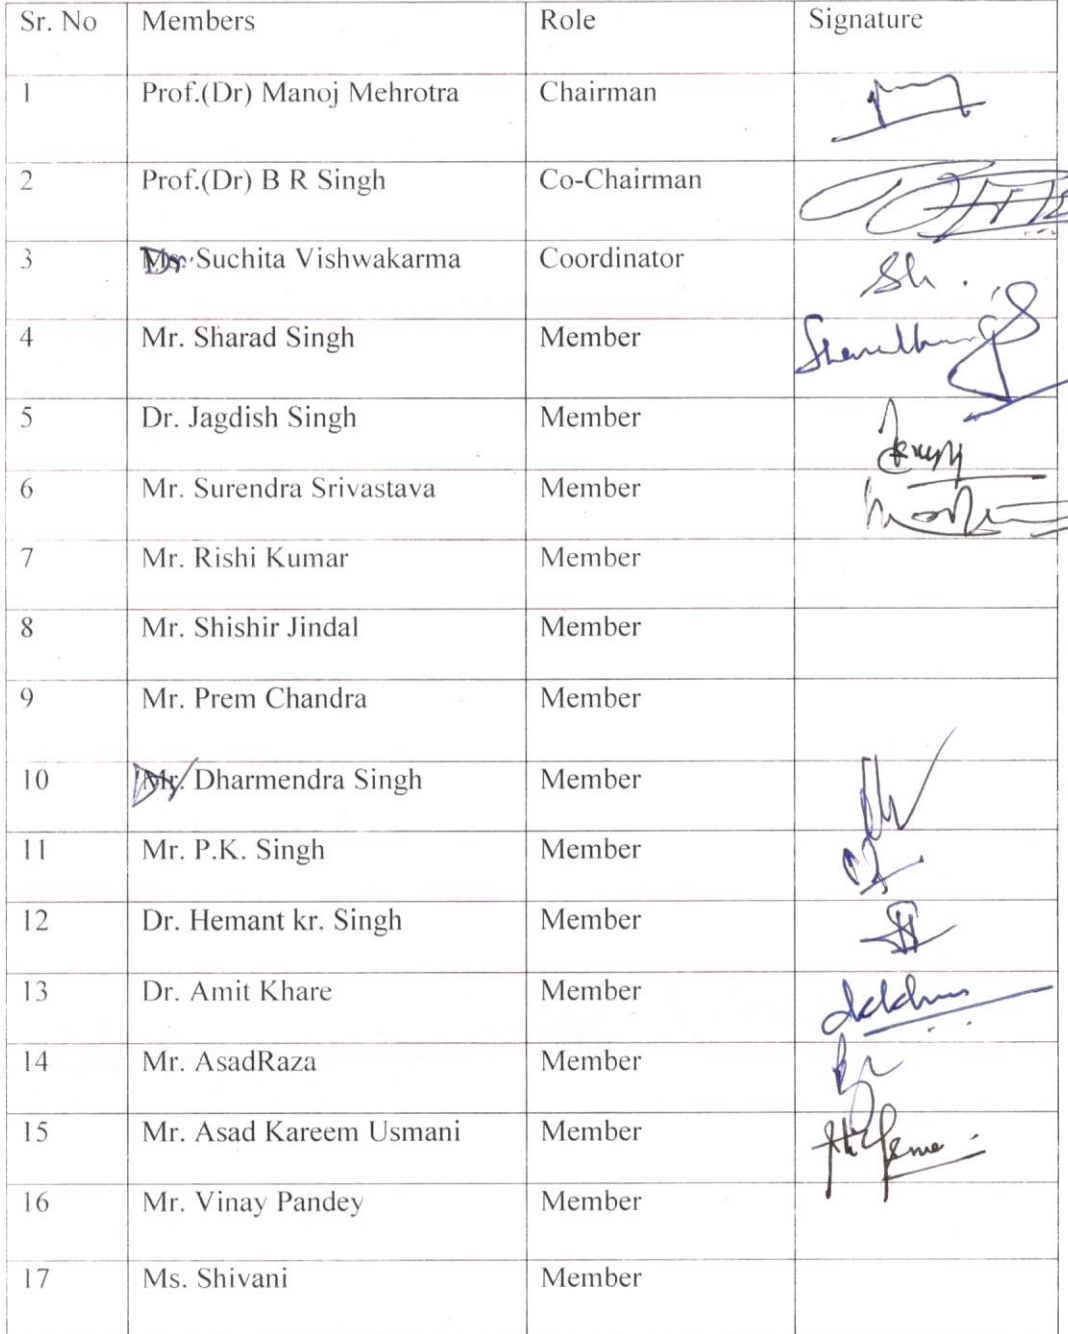 Sr. No Members Role Signature
1 Prof.(Dr) Manoj Mehrotra Chairman
2 Prof.(Dr) B R Singh Co-Chairman
3 Dr. Suchita Vishwakarma Coordinator
4 Mr. Sharad Singh Member
5 Dr. Jagdish Singh Member
6 Mr. Surendra Srivastava Member
7 Mr. Rishi Kumar Member
8 Mr. Shishir Jindal Member
9 Mr. Prem Chandra Member
10 Dr. Dharmendra Singh Member
11 Mr. P.K. Singh Member
12 Dr. Hemant kr. Singh Member
13 Dr. Amit Khare Member
14 Mr. AsadRaza Member
15 Mr. Asad Kareem Usmani Member
16 Mr. Vinay Pandey Member
17 Ms. Shivani Member